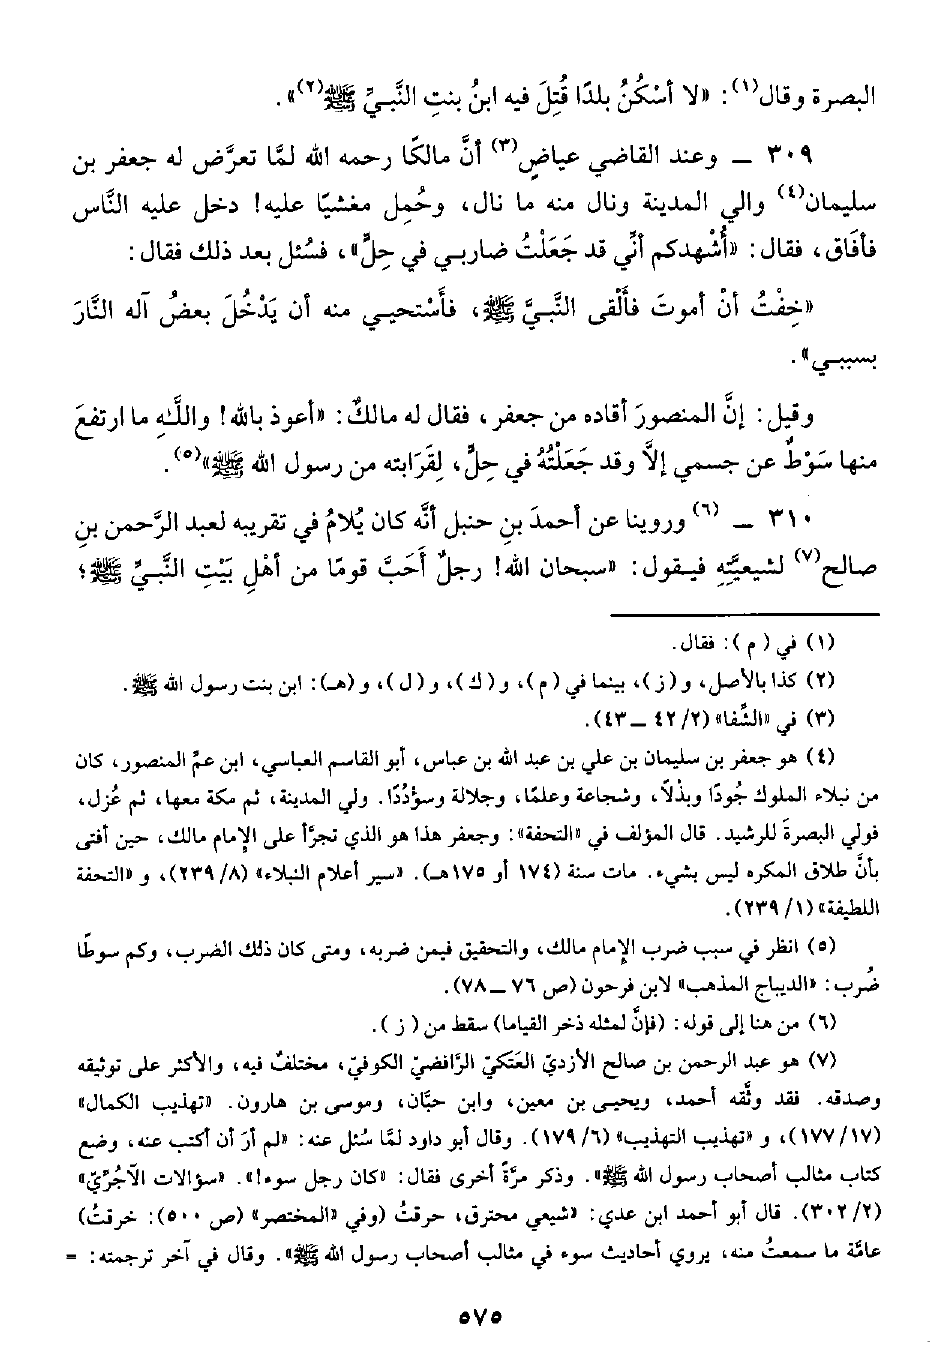 البصرة وقال(١): «لا أسْكُنُ بلدًا قُتِلَ فيه ابنُ بنتِ النَّبيِّ ﷺ(٢)».
٣٠٩ ــ وعند القاضي عياضٍ(٣) أنَّ مالكًا رحمه الله لمَّا تعرَّض له جعفر بن
سليمان(٤) والي المدينة ونال منه ما نال، وحُمِل مغشيًا عليه! دخل عليه النَّاس
فأفَاق، فقال: «أُشْهدكم أنِّي قد جَعَلْتُ ضاربي في حِلٍّ»، فسُئل بعد ذلك فقال:
«خِفْتُ أنْ أموتَ فألْقى النَّبيَّ ﷺ، فأسْتحيي منه أن يَدْخُلَ بعضُ آله النَّارَ
بسببي».
وقيل: إنَّ المنصورَ أقاده من جعفر، فقال له مالكٌ: «أعوذ بالله! واللَّهِ ما ارتفعَ
منها سَوْطٌ عن جسمي إلاَّ وقد جَعَلْتُهُ في حِلٍّ، لِقَرَابته من رسول الله ﷺ»(٥).
٣١٠ ــ (٦) وروينا عن أحمدَ بنِ حنبل أنَّه كان يُلامُ في تقريبه لعبد الرَّحمن بنِ
صالح(٧) لشيعيَّتِهِ فيقول: «سبحان الله! رجلٌ أَحَبَّ قومًا من أهْلِ بَيْتِ النَّبيِّ ﷺ؛
(١) في (م): فقال.
(٢) كذا بالأصل، و(ز)، بينما في (م)، و(ك)، و(ل)، و(هـ): ابن بنت رسول الله ﷺ.
(٣) في «الشِّفا» (٢/ ٤٢ ــ ٤٣).
(٤) هو جعفر بن سليمان بن علي بن عبد الله بن عباس، أبو القاسم العباسي، ابن عمِّ المنصور، كان
من نبلاء الملوك جُودًا وبذلًا، وشجاعة وعلمًا، وجلالة وسؤدُدًا. ولي المدينة، ثم مكة معها، ثم عُزل،
فولي البصرةَ للرشيد. قال المؤلف في «التحفة»: وجعفر هذا هو الذي تجرَّأ على الإمام مالك، حين أفتى
بأنَّ طلاق المكره ليس بشيء. مات سنة (١٧٤ أو ١٧٥هـ). «سير أعلام النبلاء» (٨/ ٢٣٩)، و «التحفة
اللطيفة» (١/ ٢٣٩).
(٥) انظر في سبب ضرب الإمام مالك، والتحقيق فيمن ضربه، ومتى كان ذلك الضرب، وكم سوطًا
ضُرب: «الديباج المذهب» لابن فرحون (ص ٧٦ ــ ٧٨).
(٦) من هنا إلى قوله: (فإنَّ لمثله ذخر القياما) سقط من (ز).
(٧) هو عبد الرحمن بن صالح الأزديّ العَتَكيّ الرَّافضيّ الكوفيّ، مختلفٌ فيه، والأكثر على توثيقه
وصدقه. فقد وثَّقه أحمد، ويحيى بن معين، وابن حبَّان، وموسى بن هارون. «تهذيب الكمال»
(١٧/ ١٧٧)، و «تهذيب التهذيب» (٦/ ١٧٩). وقال أبو داود لمَّا سُئل عنه: «لم أرَ أن أكتب عنه، وضع
كتاب مثالب أصحاب رسول الله ﷺ». وذكر مرَّةً أخرى فقال: «كان رجل سوء!». «سؤالات الآجُرِّيّ»
(٢/ ٣٠٢). قال أبو أحمد ابن عدي: «شيعي محترق، حرقتُ (وفي «المختصر» (ص ٥٠٠): خرقتُ)
عامَّة ما سمعتُ منه، يروي أحاديث سوء في مثالب أصحاب رسول الله ﷺ». وقال في آخر ترجمته: =
٥٧٥